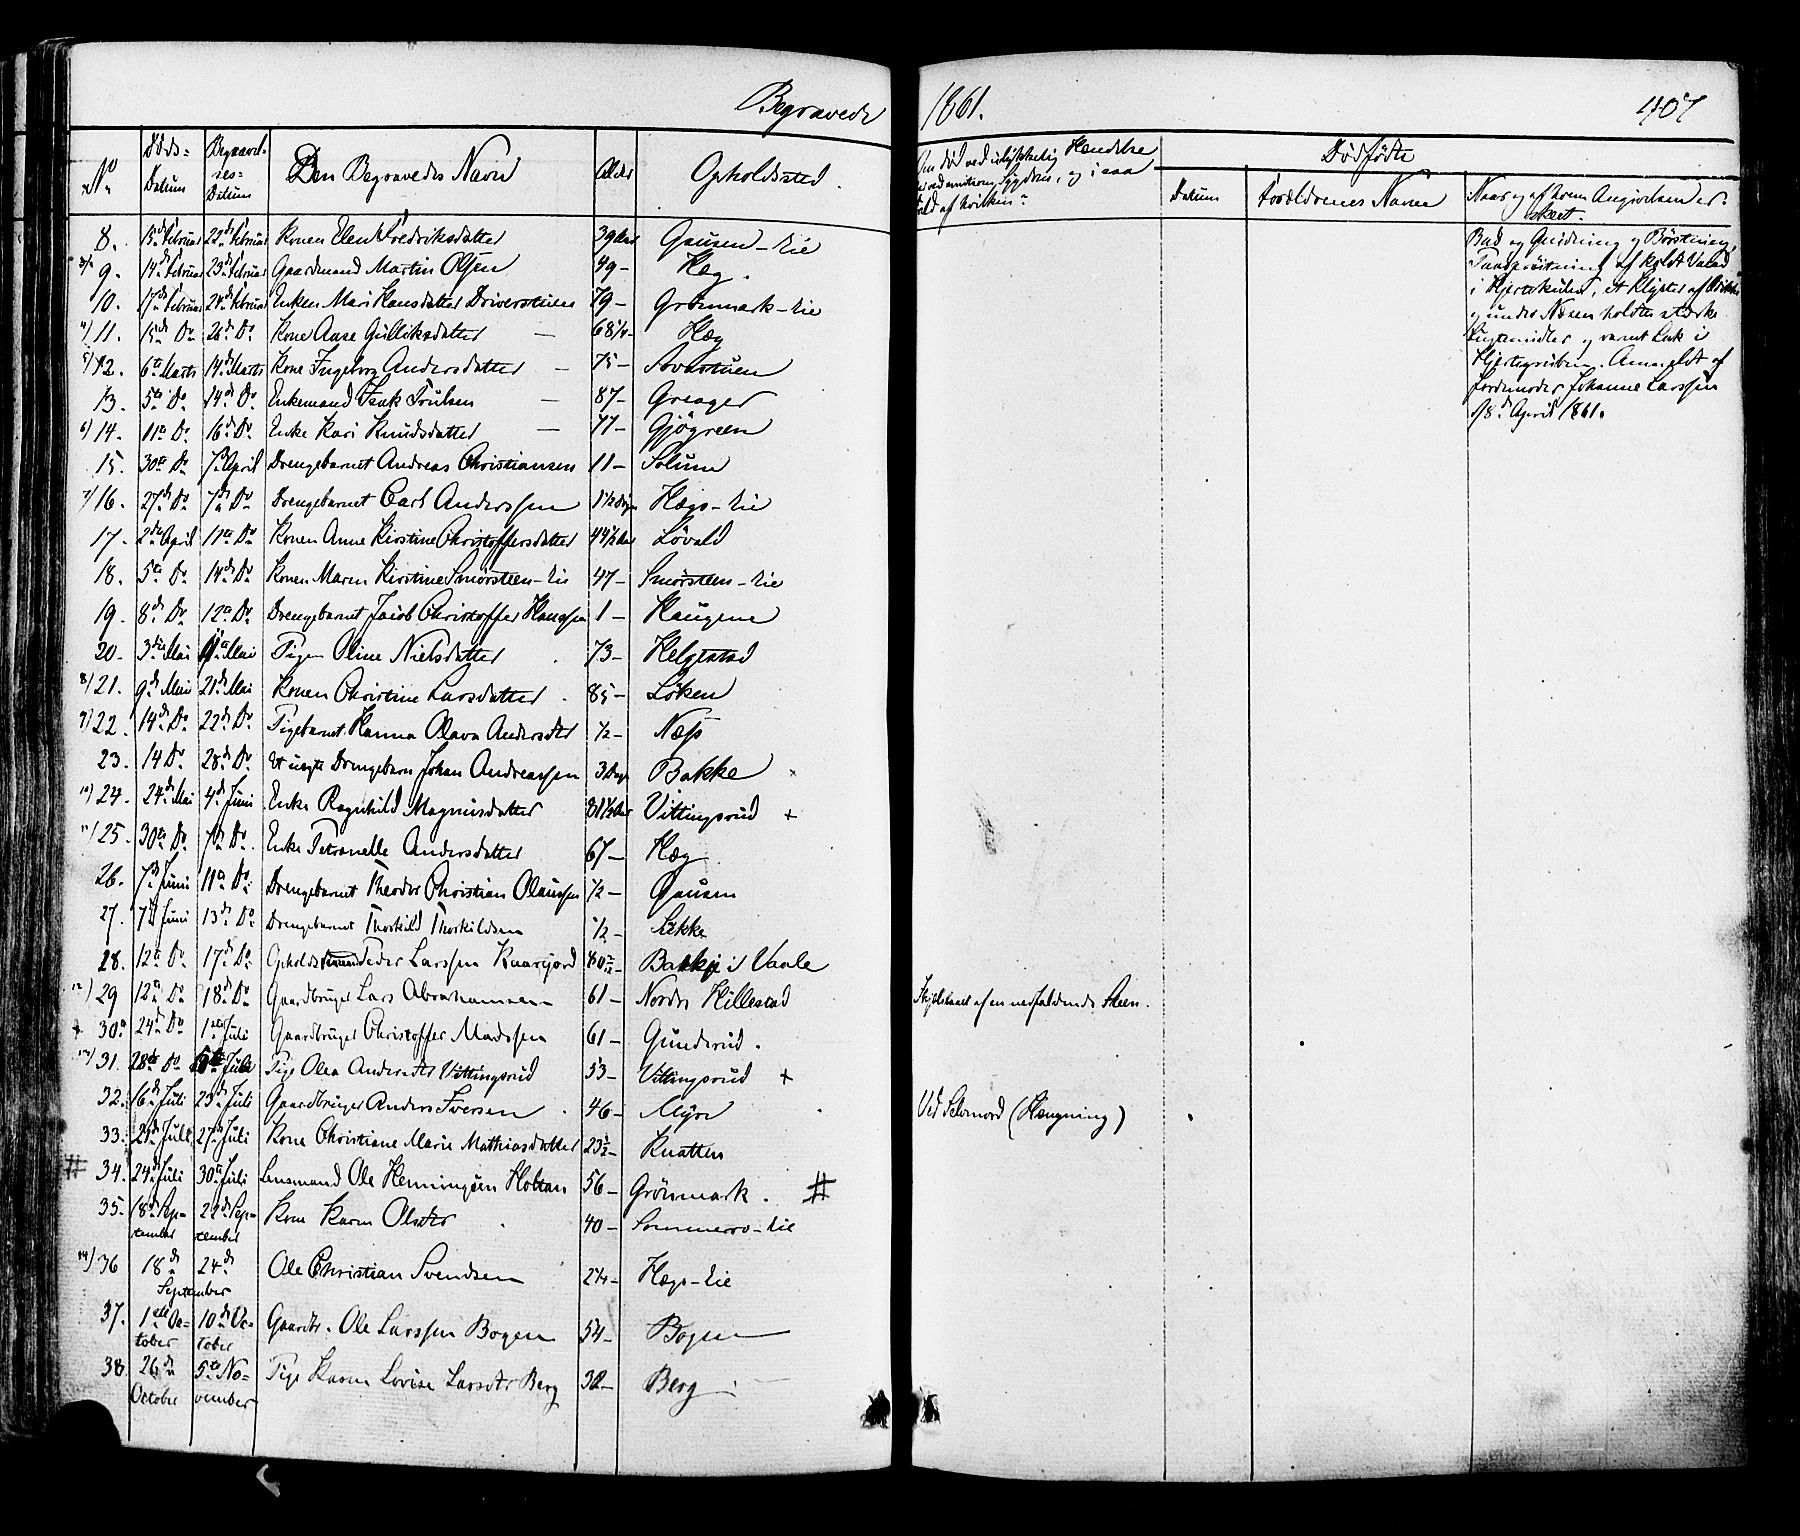 Begravede 1861. 407
No Døds-Datum Begravel-ses-Datum Den Begravedes Navn Alder Opholdssted.
Om død ved ulykkelig Hændelse
Sygdom, og i saa
Fald af hvilken?
Dødfødte
Datum Forældrenes Navne Naar og af hvem Angivelsen er skeet.
8. 15de Februar 22de Februar Konen Elen Fredriksdatter 39 Aar Gausen-Eie
9. 14de Februar 23de Februar Gaardmand Martin Olsen 49 - Hæg.
10. 17de Februar 24de Februar Enken Mari Hansdatter Driverstuen 79 - Grønmark-Eie
4) 11. 15de Do 26de Do Kone Aase Gulliksdatter - 68 1/4 - Hæg
5) 12. 6te Marts 14de Marts Kone Ingeborg Andersdatter - 75 -
13. 5te Do 14de Do Enkemand Isak Trulsen - 87 - Greager
6) 14. 11te Do 16de Do Enke Kari Knudsdatter - 77 - Gjøgreen
15. 30te Do 7de April Drengebarnet Andreas Christiansen 11 - Solum
7) 16. 27de Do 7de Do Drengebarnet Carl Anderssen 1 1/2 Døgn Hægs-Eie
17. 2den April 11te Do Konen Anne Kirstine Christoffersdatter 44 1/2 Aar Løvald
18. 5te Do 14de Do Konen Maren Kirstine Smørsteen-Eie 47 - Smørsteen-Eie
19. 8de Do 12te Do Drengebarnet Jacob Christoffer Hanssen 1 - Haugene
20. 3die Mai Mai Pigen Oline Nielsdatter . 73 - Helgestad
8) 21. 9de Mai 21de Mai Konen Christine Larsdatter . 85 - Løken
9) 22. 14de Do 22de Do Pigebarnet Hanna Olava Andersdtr 1/2 - Næss
23. 14 Do 28de Do Et uægte Drengebarn Johan Andreassen 3 Dage Bakke
10) 24. 24de Mai 4de Juni Enke Ragnhild Magnusdatter 81 1/2 Aar Vittingsrud +
11) 25. 30te Do 7de Do Enke Petronelle Andersdatter 67 - Hæg
26. 7de Juni 11te Do Drengebarnet Theodor Christian Olaussen 1/2 - Gausen
27. 7de Juni 13de Do Drengebarnet Thorkild Thorkildsen 1/2 - Eikke
28. 12te Do 17de Do Peder Larssen Knarjord Bakke i Vaale
12) 29 12te Do 18de Do Gaardbruger Lars Abrahamsen - 61 - Nordre Hillestad Ihjelslaaet af en nedfaldende Steen.
+ 30. 24de Do 1ste Juli Gaardbruger Christoffer Madssen 61 - Gunderud.
13) 31. 28de Do Juli Pige Olea Andersdtr Vittingsrud 53 - Vittingsrud +
32. 16de Juli 23de Juli Gaardbruger Anders Iversen . 46 - Myre Ved Selvmord (Hængning)
33. 21de Juli 27de Juli Kone Christiane Marie Mathiasdatter 23 1/2 - Knatten
# 34. 24de Juli 30te Juli Lensmand Ole Henningsen Holtan 56 - Grønmark. #
35. 18de Sep-tember 22de Sep-tember Kone Karen Olsdtr 40 - Sommerro-Eie
14) 36 18de 24de September Ole Christian Svendsen 24 - Hægs-Eie
37. 1ste Oc-tober 10de Oc-tober Gaardbr. Ole Larssen Bogen 54 - Bogen
38 26de October 5te No-vember Pige Karen Lovise Larsdtr Berg 32 - Berg
Bad og Gnidning og Børstning,
af koldt Vand
i Hjertekulen, et Klyster af
og under Næsen holdtes stærke
Lugtemidler og varmt Læk i
Hjertegruben. Anmeldt af
Jordemoder Johanne Larssen
18de April 1861.